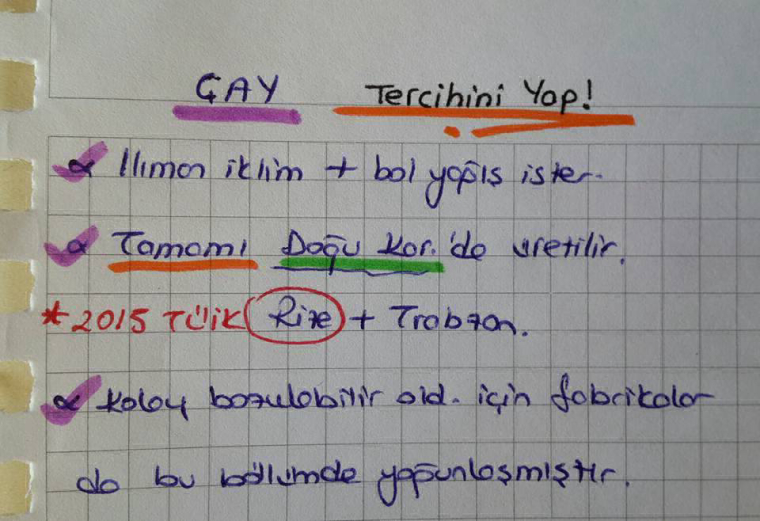 ÇAY Tercihini Yap!
Ilıman iklim + bol yağış ister.
Tamamı Doğu Kar.'da üretilir.
* 2015 TÜİK Rize + Trabzon.
Kolay bozulabilir old. için fabrikalar
da bu bölümde yoğunlaşmıştır.